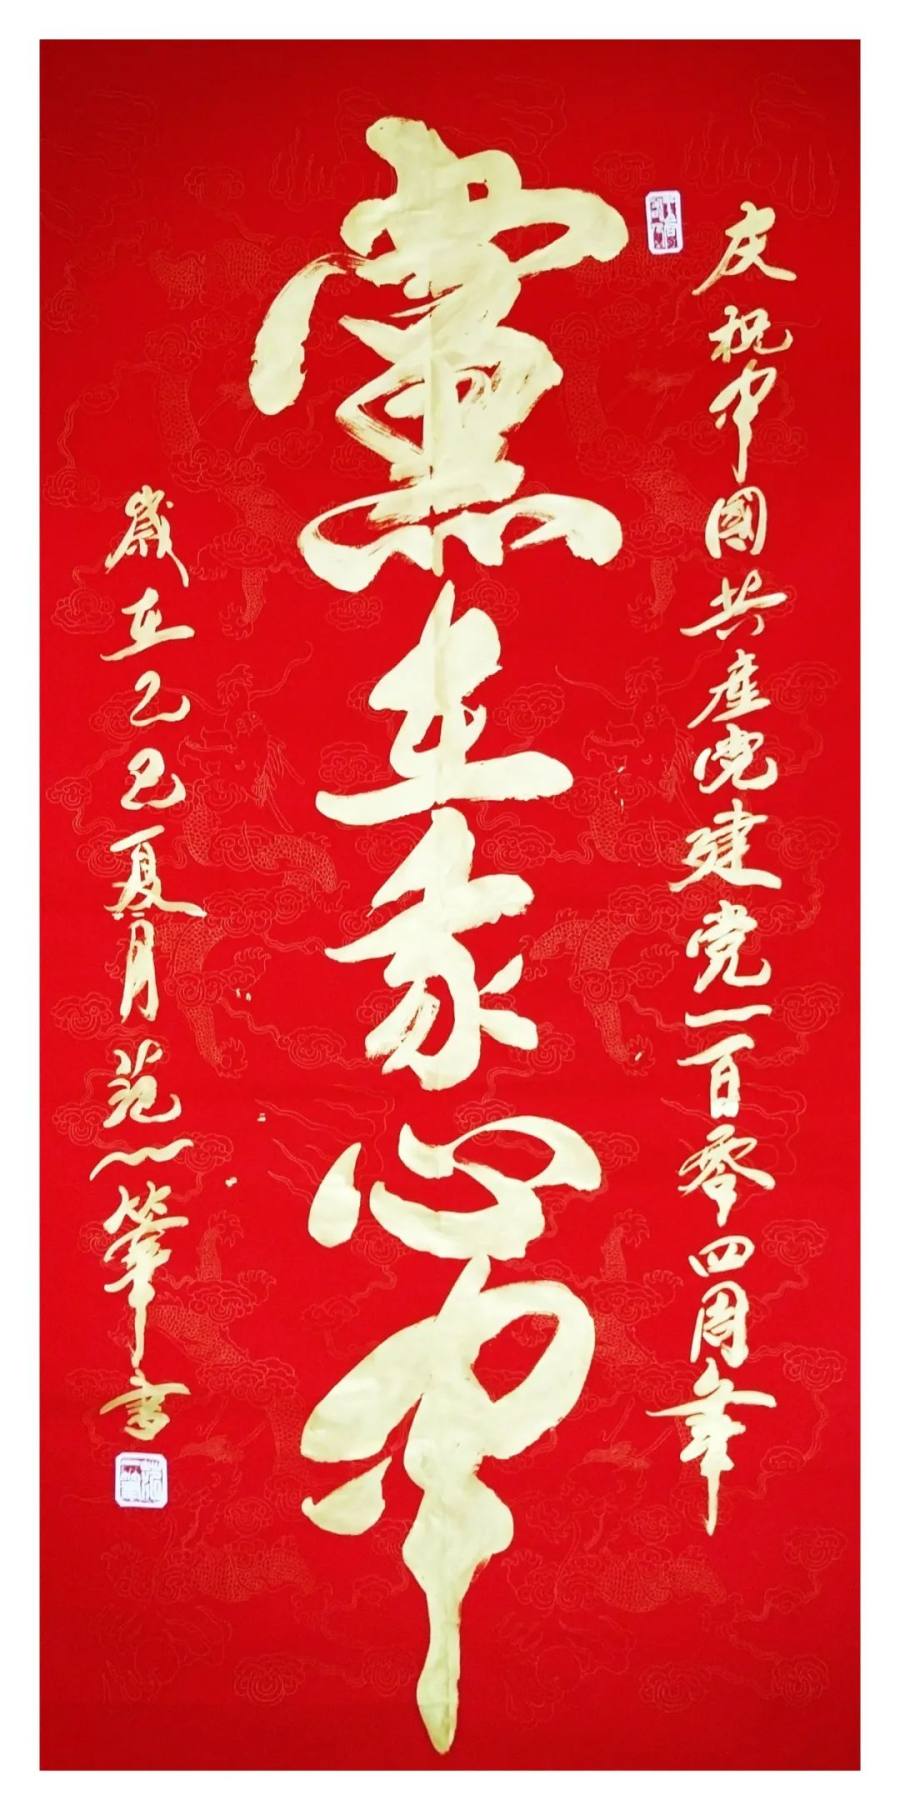 庆祝中國共産党建党一百零四周年
黨在我心中
歲在乙巳夏月范一筆書